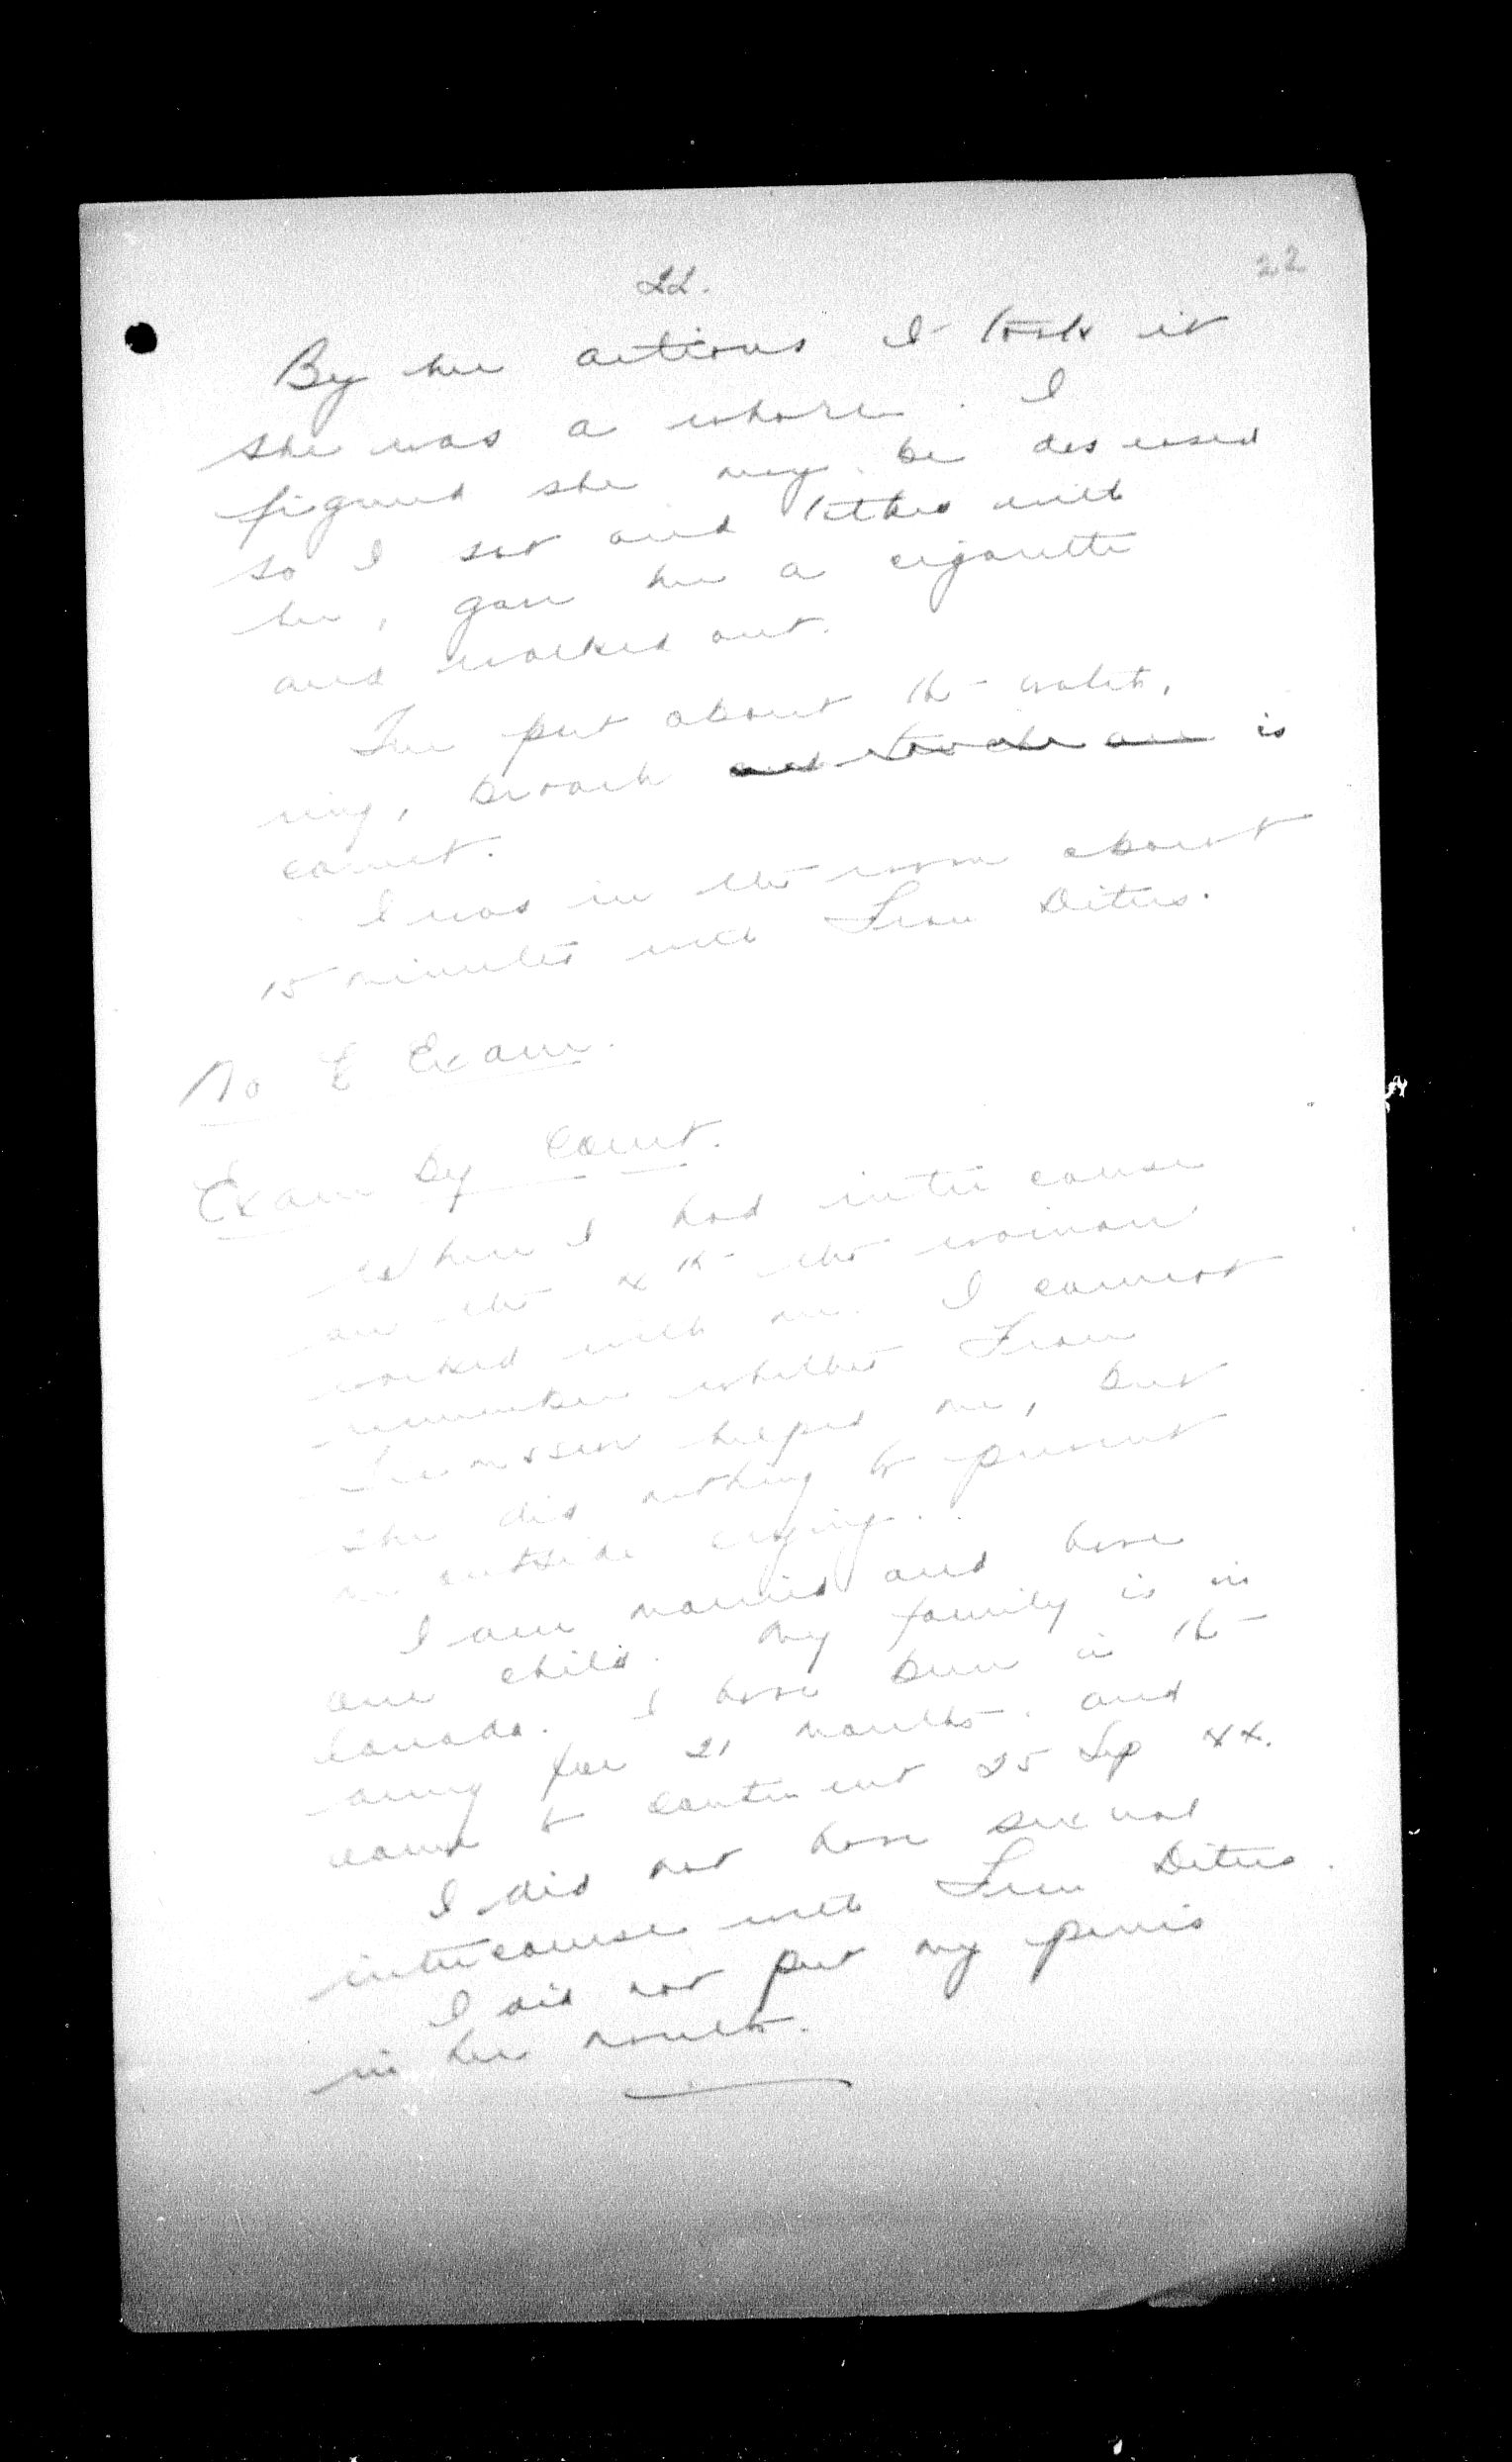 22.
22
By her actions I took it
she was a whore. I
figured she may be deseased
so I sat and talked with
her, gave her a cigarette
and walked out.
The part about the watch,
ring, broach and is
correct.
I was in the room about
15 minutes with Frau Ditus.
No X Exam.
Exam by Court.
When I had intercourse
on the 4th the woman
worked with me. I cannot
remember whether Frau
helped me, but
she did nothing to prevent
me outside crying.
I am married and have
one child. My family is in
Canada. I have been in the
army for 21 months and
came to continent 25 Sep 44.
I did not have sexual
intercourse with Frau Ditus.
I did not put my penis
in her mouth.